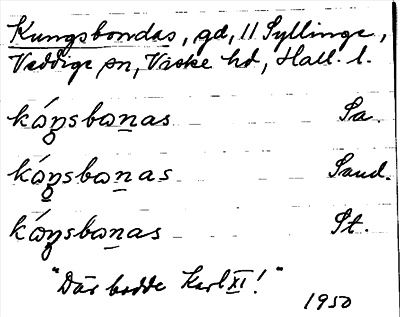 Kungsbondas, gd, 11 Syllinge,
Veddige sn, Viske hd, Hall. l.
kóŋsbωnas Sa.
kóŋsbωnas Sand.
kóŋsbωnas St.
"Där bodde Karl XI!"
1950